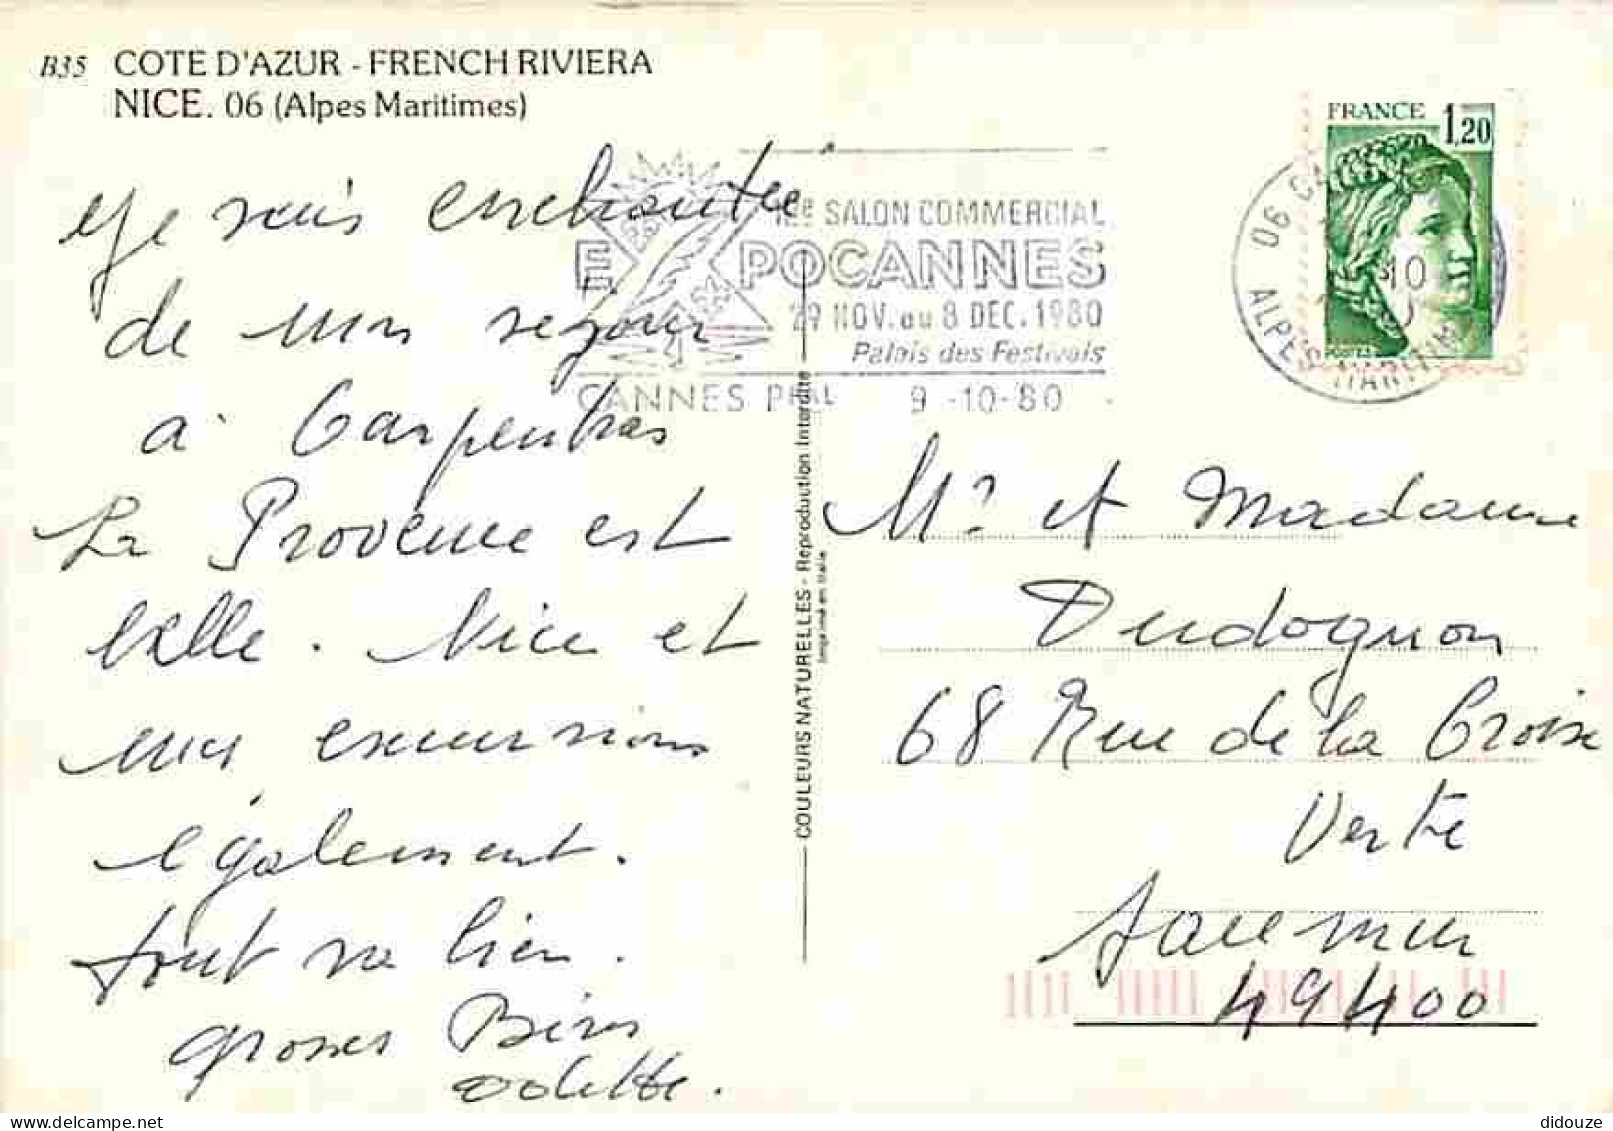 B35 COTE D'AZUR - FRENCH RIVIERA
NICE. 06 (Alpes Maritimes)
Je suis enchantée
de mon séjour
à Carpentras
La Provence est
belle. Nice et
nos excursions
également.
tout va bien.
grosses Bises
Odette.
SALON COMMERCIAL
EXPOCANNES
29 NOV. au 8 DEC. 1980
Palais des Festivals
CANNES PPAL 9-10-80
COULEURS NATURELLES - Reproduction Interdite
Imprimé en Italie
FRANCE 1,20
POSTES
06
10
ALPES MARITIMES
Mr et Madame
Dudognon
68 Rue de la Croix
Verte
Saumur
49400
didouze